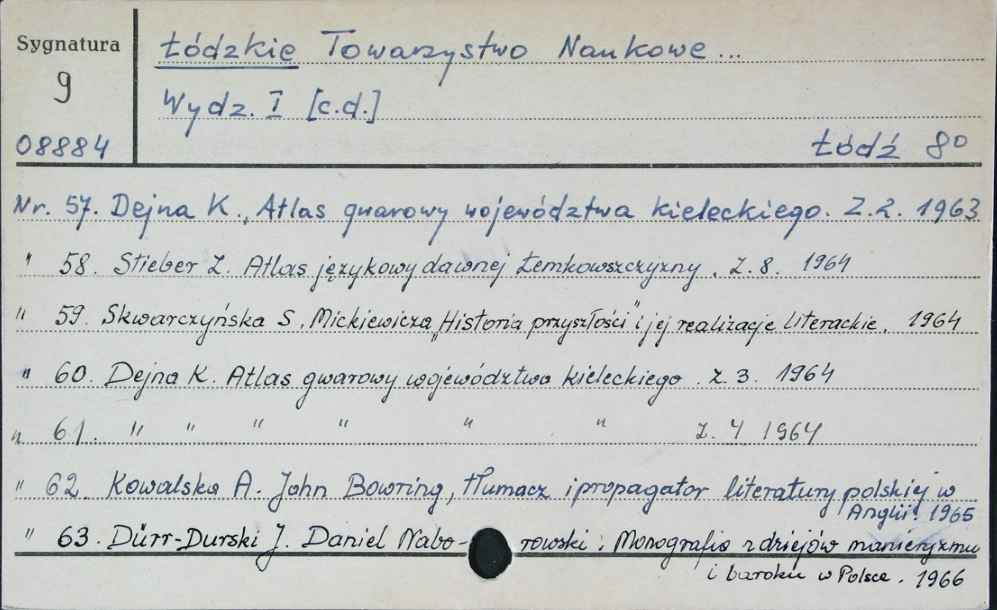 Sygnatura
9
08884
Łódzkie Towarzystwo Naukowe...
Wydz. I [c.d.]
Łódź 80
Nr. 57. Dejna K., Atlas gwarowy województwa kieleckiego. Z.2. 1963
" 58. Stieber Z. Atlas językowy dawnej Łemkowszczyzny. Z. 8. 1964
" 59. Skwarczyńska S. Mickiewicza "Historia przyszłości" i jej realizacje literackie. 1964
" 60. Dejna K. Atlas gwarowy województwa kieleckiego. Z. 3. 1964
" 61. " " " " " " Z. 4 1964
" 62. Kowalska A. John Bowring, tłumacz i propagator literatury polskiej w
Anglii. 1965
" 63. Dürr-Durski J. Daniel Nabo-rowski: Monografia z dziejów manieryzmu
i baroku w Polsce. 1966